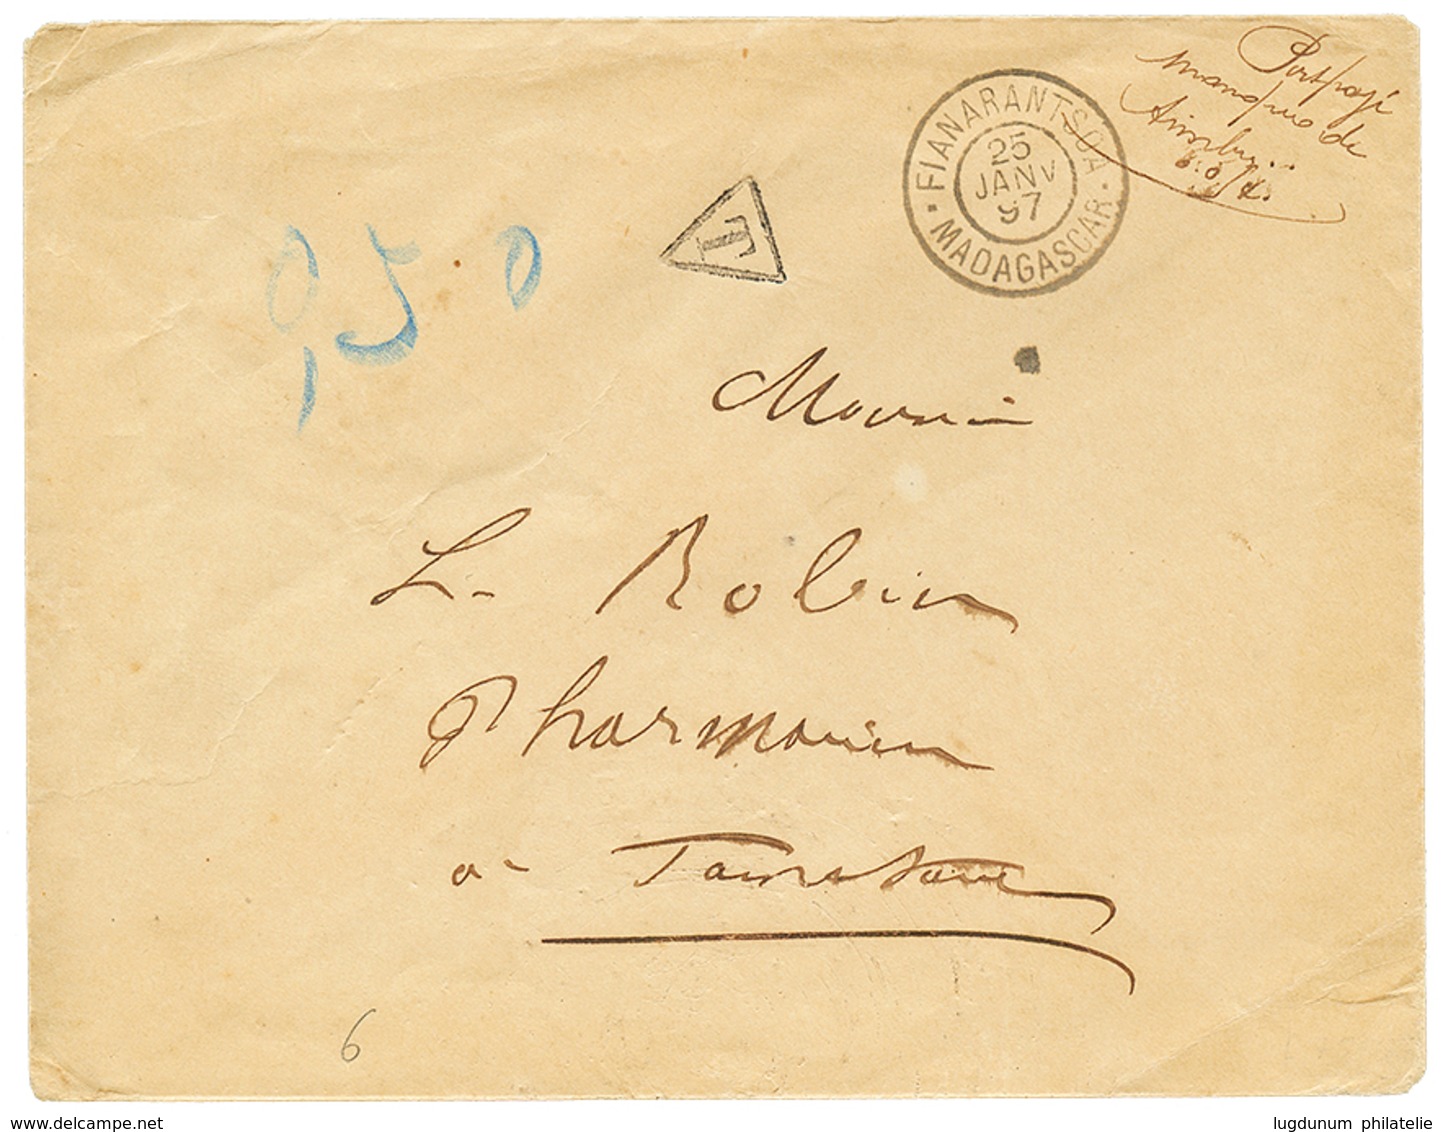 Port payé
manque de
timbres
FIANARANTSOA
25
JANV
97
MADAGASCAR
T
0,50
Monsieur
L. Robin
Pharmacien
à Tamatave
6
www.delcampe.net
lugdunum philatelie